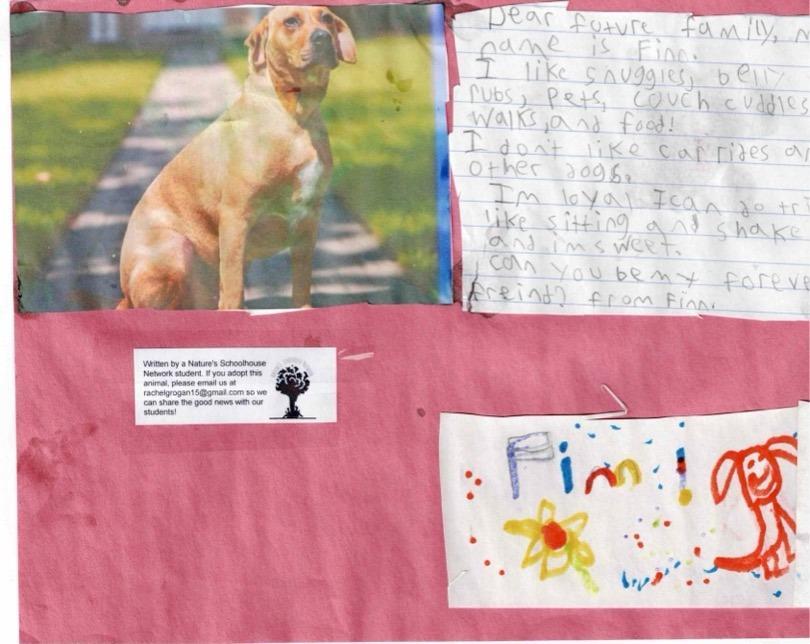 Dear future family, m
name is Finn.
I like snuggles, belly
rubs, pets, couch cuddles
walks, and food!
I don't like car rides an
other dogs.
Im loyal I can do tri
like sitting and shake
and im sweet.
can you be my forev
freind? from Finn.
Written by a Nature's Schoolhouse
Network student. If you adopt this
animal, please email us at
rachelgrogan15@gmail.com so we
can share the good news with our
students!
Finn!